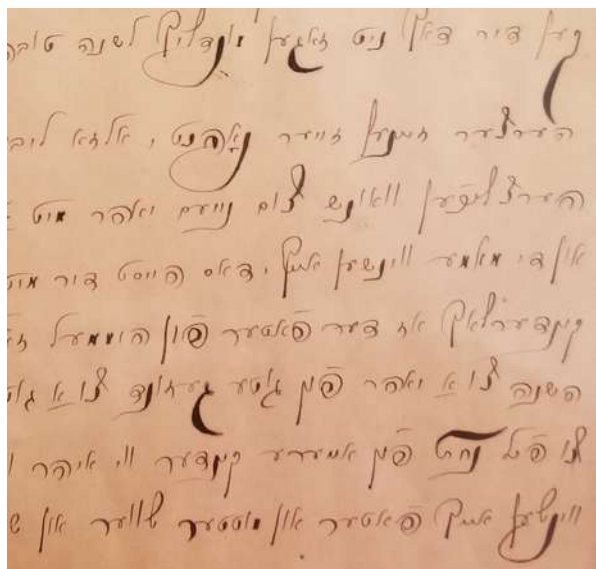 קען דיר דאך ניט זאגען מינדליך לשנה טובה
הערצער זענען זייער נאָהנט, אלזא ליב
הערצליכען וואונש צום נייעם יאהר מיט
און די מאמע ווינשען אייך, דאס הייסט דיר מיט
קינדערלאך אז דער פֿאטער פֿון הוממעל
השנה צו א יאהר פֿון גוטע געזונד צו א גוט
צו פֿיל נחת פֿון אייערע קינדער ווי איהר
ווינשען אייך פֿאטער און מוטער שווער און ש